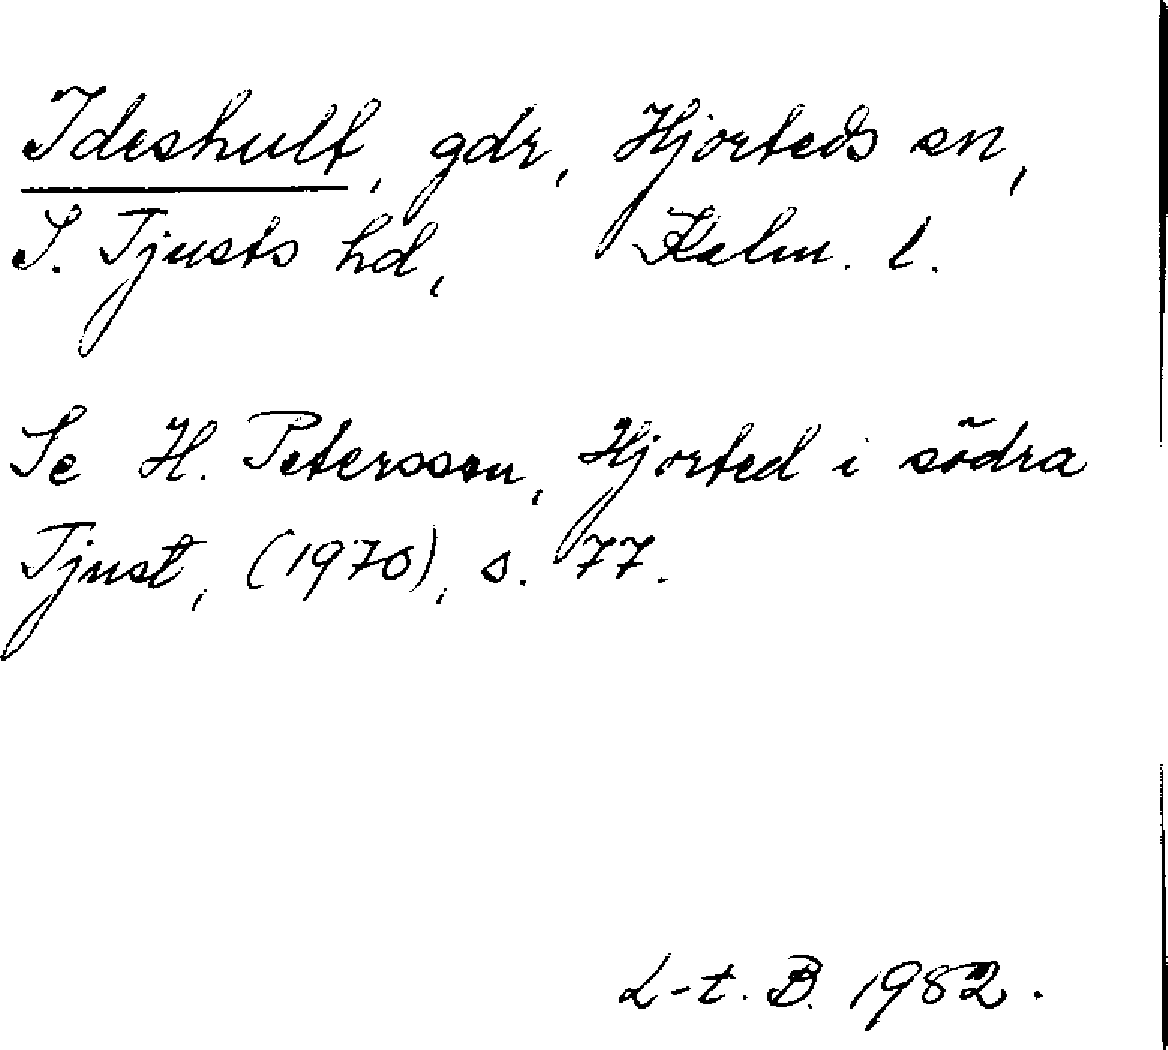 Ideshult, gdr, Hjorteds sn,
S. Tjusts hd, Kalm. l.
Se H. Petersson, Hjorted i södra
Tjust, (1970), s. 77.
L-t. B. 1982.